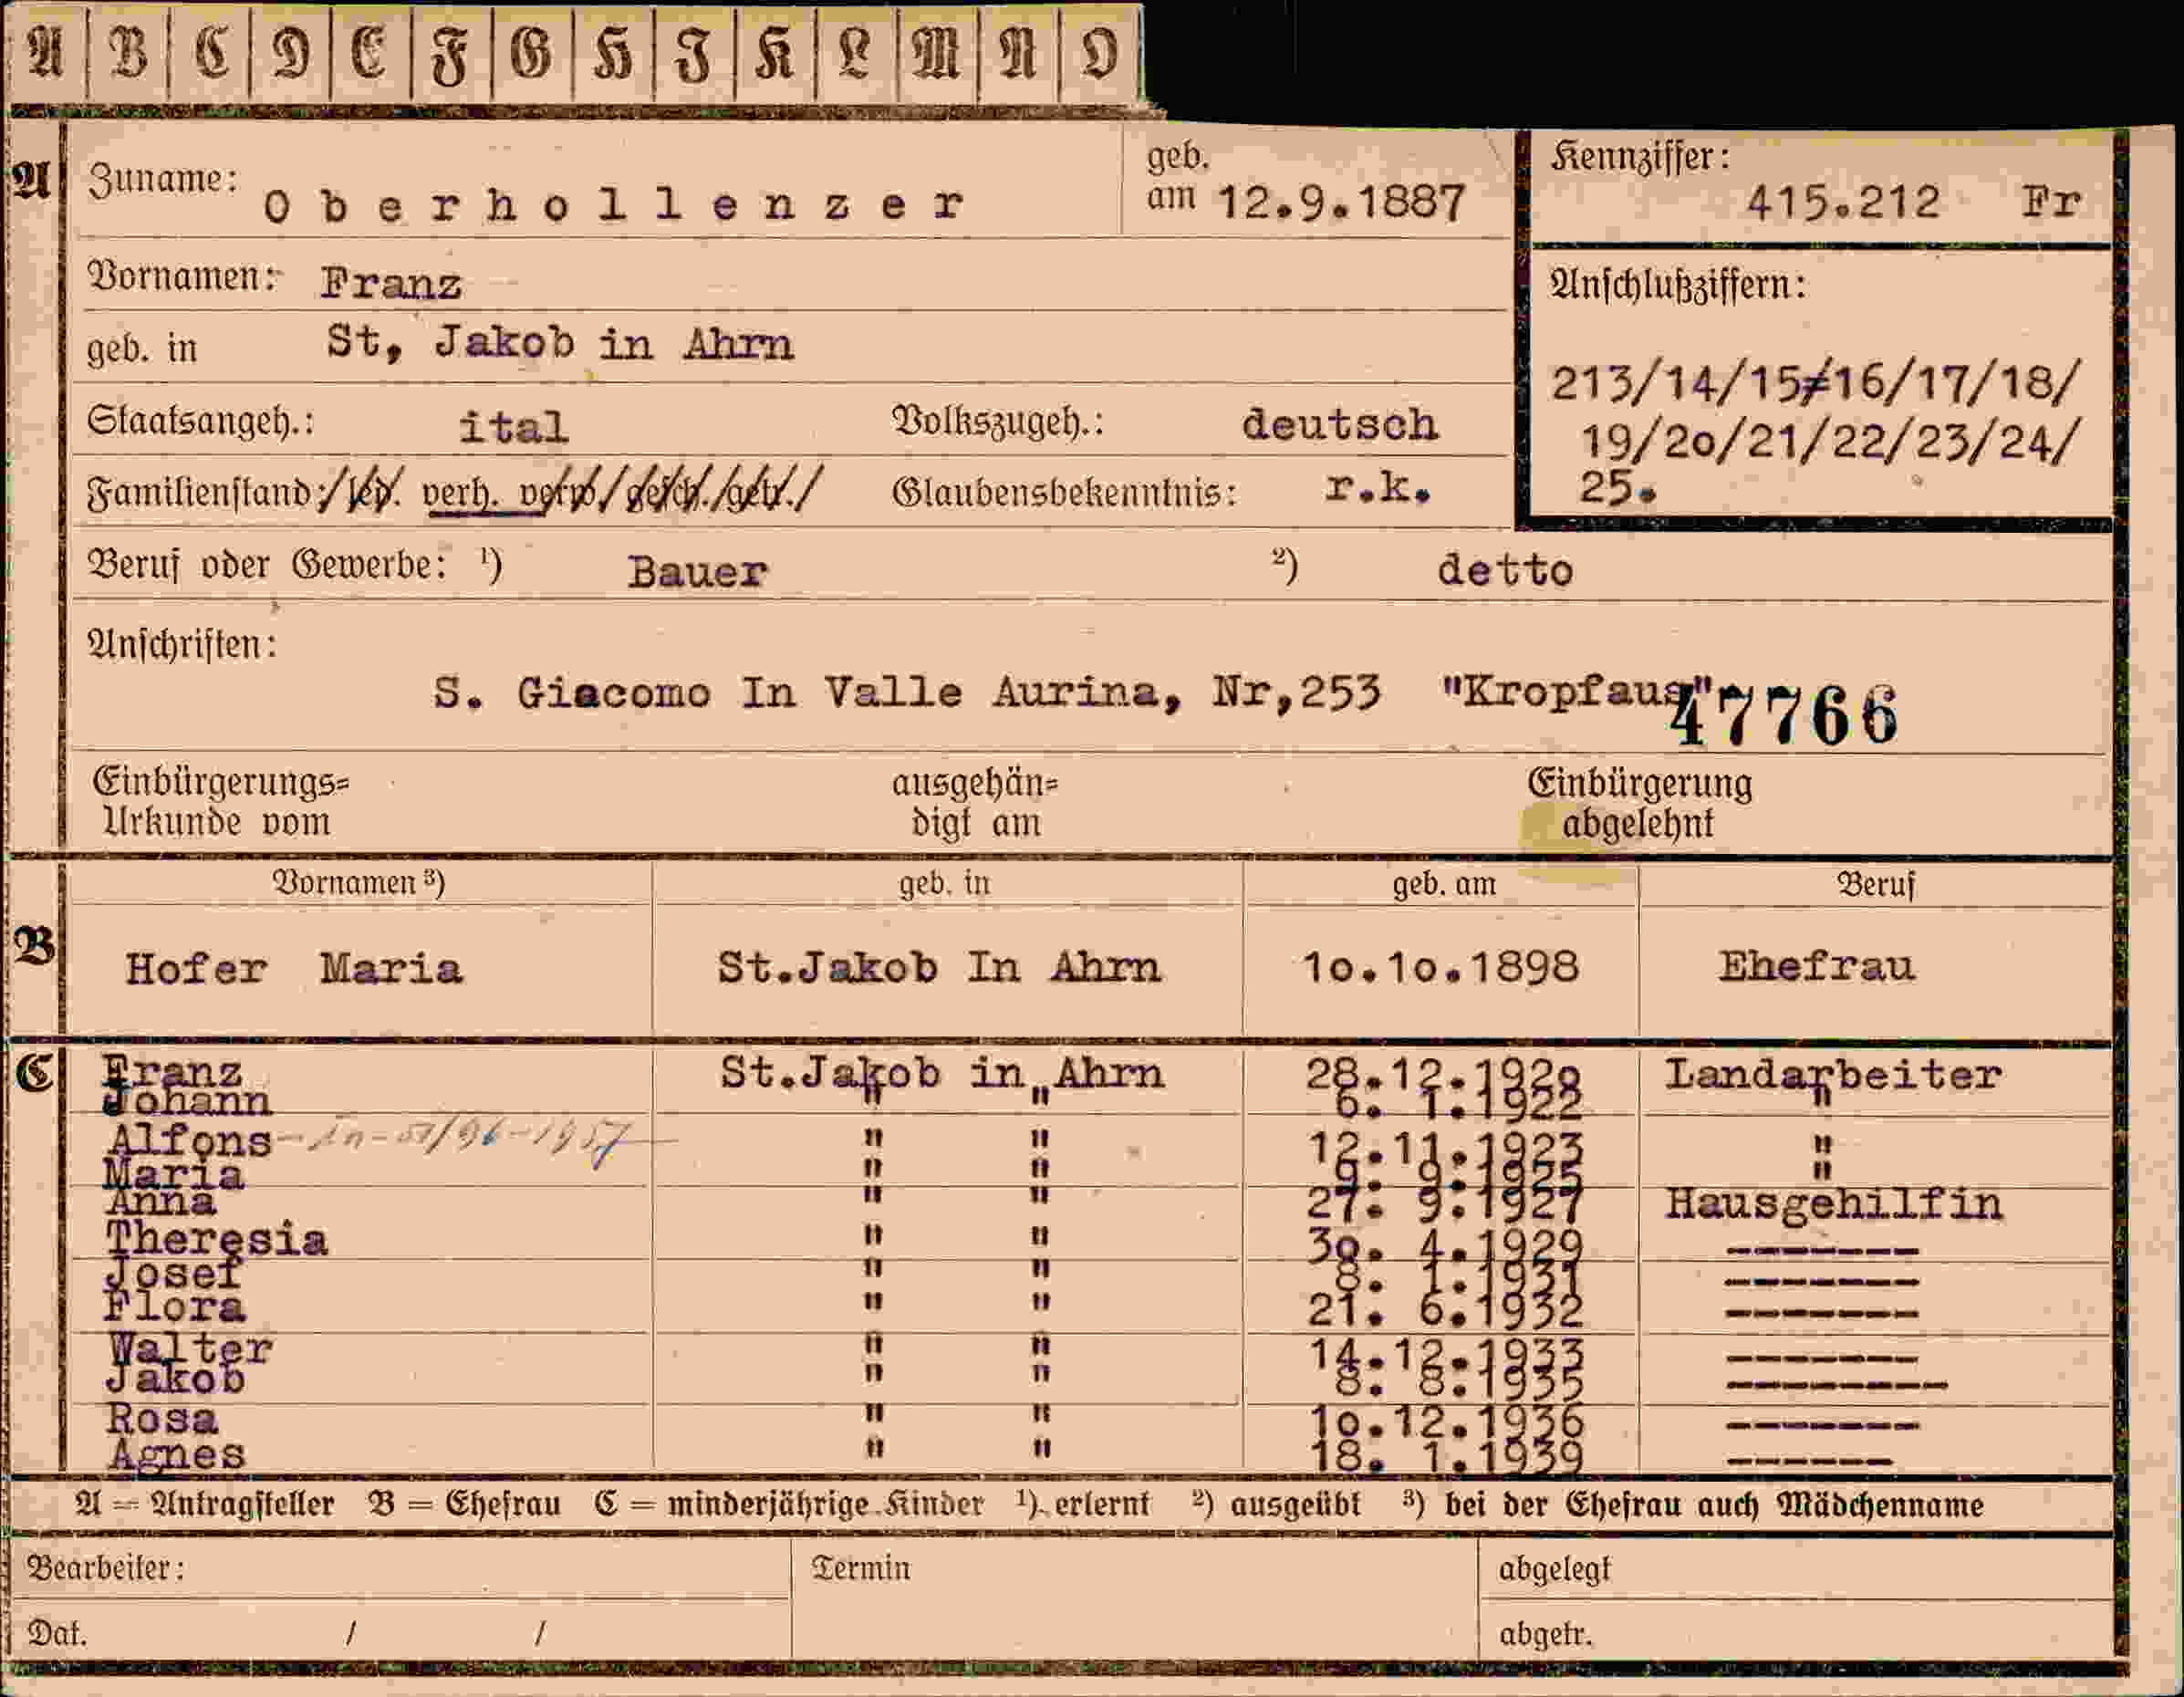 A B C D E F G H I K L M N O
A Zuname: Oberhollenzer geb. am 12.9.1887 Kennziffer: 415.212 Fr
Vornamen: Franz
geb. in St, Jakob in Ahrn
Anschlußziffern:
213/14/15/16/17/18/
19/20/21/22/23/24/
25.
Staatsangeh.: ital Volkszugeh.: deutsch
Familienstand: led. verh. verw. gesch. getr. Glaubensbekenntnis: r.k.
Beruf oder Gewerbe: 1) Bauer 2) detto
Anschriften:
S. Giacomo In Valle Aurina, Nr,253 "Kropfaus" 47766
Einbürgerungs=
Urkunde vom
ausgehän=
digt am
Einbürgerung
abgelehnt
Vornamen 3) geb. in geb. am Beruf
B Hofer Maria St.Jakob In Ahrn 10.10.1898 Ehefrau
C Franz St.Jakob in Ahrn 28.12.1920 Landarbeiter
Johann " " 6. 1.1922 "
Alfons " " 12.11.1923 "
Maria " " 9. 9.1925 "
Anna " " 27. 9.1927 Hausgehilfin
Theresia " " 30. 4.1929 -------
Josef " " 8. 1.1931 -------
Flora " " 21. 6.1932 -------
Walter " " 14.12.1933 -------
Jakob " " 8. 8.1935 --------
Rosa " " 10.12.1936 -------
Agnes " " 18. 1.1939 ------
A = Antragsteller B = Ehefrau C = minderjährige Kinder 1) erlernt 2) ausgeübt 3) bei der Ehefrau auch Mädchenname
Bearbeiter: Termin abgelegt
Dat. / / abgetr.